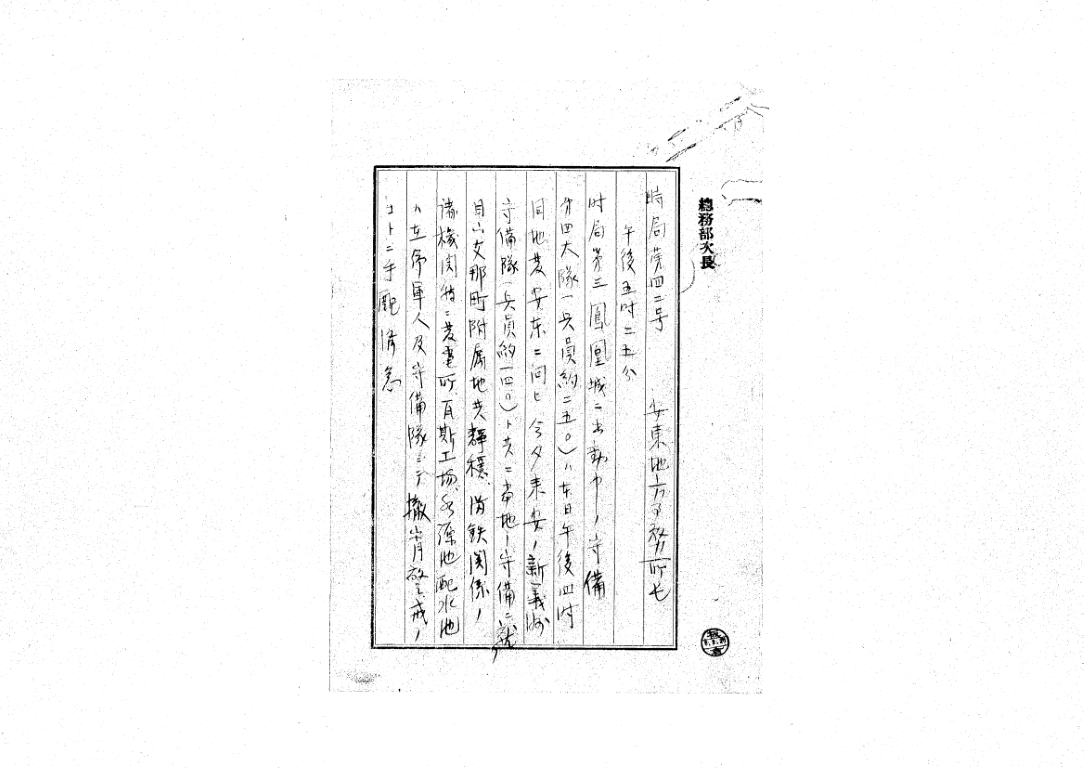 總務部次長
時局第四二号　安東地方事務所長
午後五時二五分
時局第三鳳凰城ニ出動中ノ守備
第四大隊(兵員約二五〇)ハ本日午後四時
同地発安东ニ向ヒ今夕来安ノ新義州
守備隊(兵員約一四〇)ト共ニ当地ノ守備ニ就ク
目下支那町附属地共静穏、満鉄関係ノ
諸機関特ニ発電所、瓦斯工場、水源地配水池
ハ在郷軍人及守備隊ニテ撤宵警戒ノ
コトニ手配済急